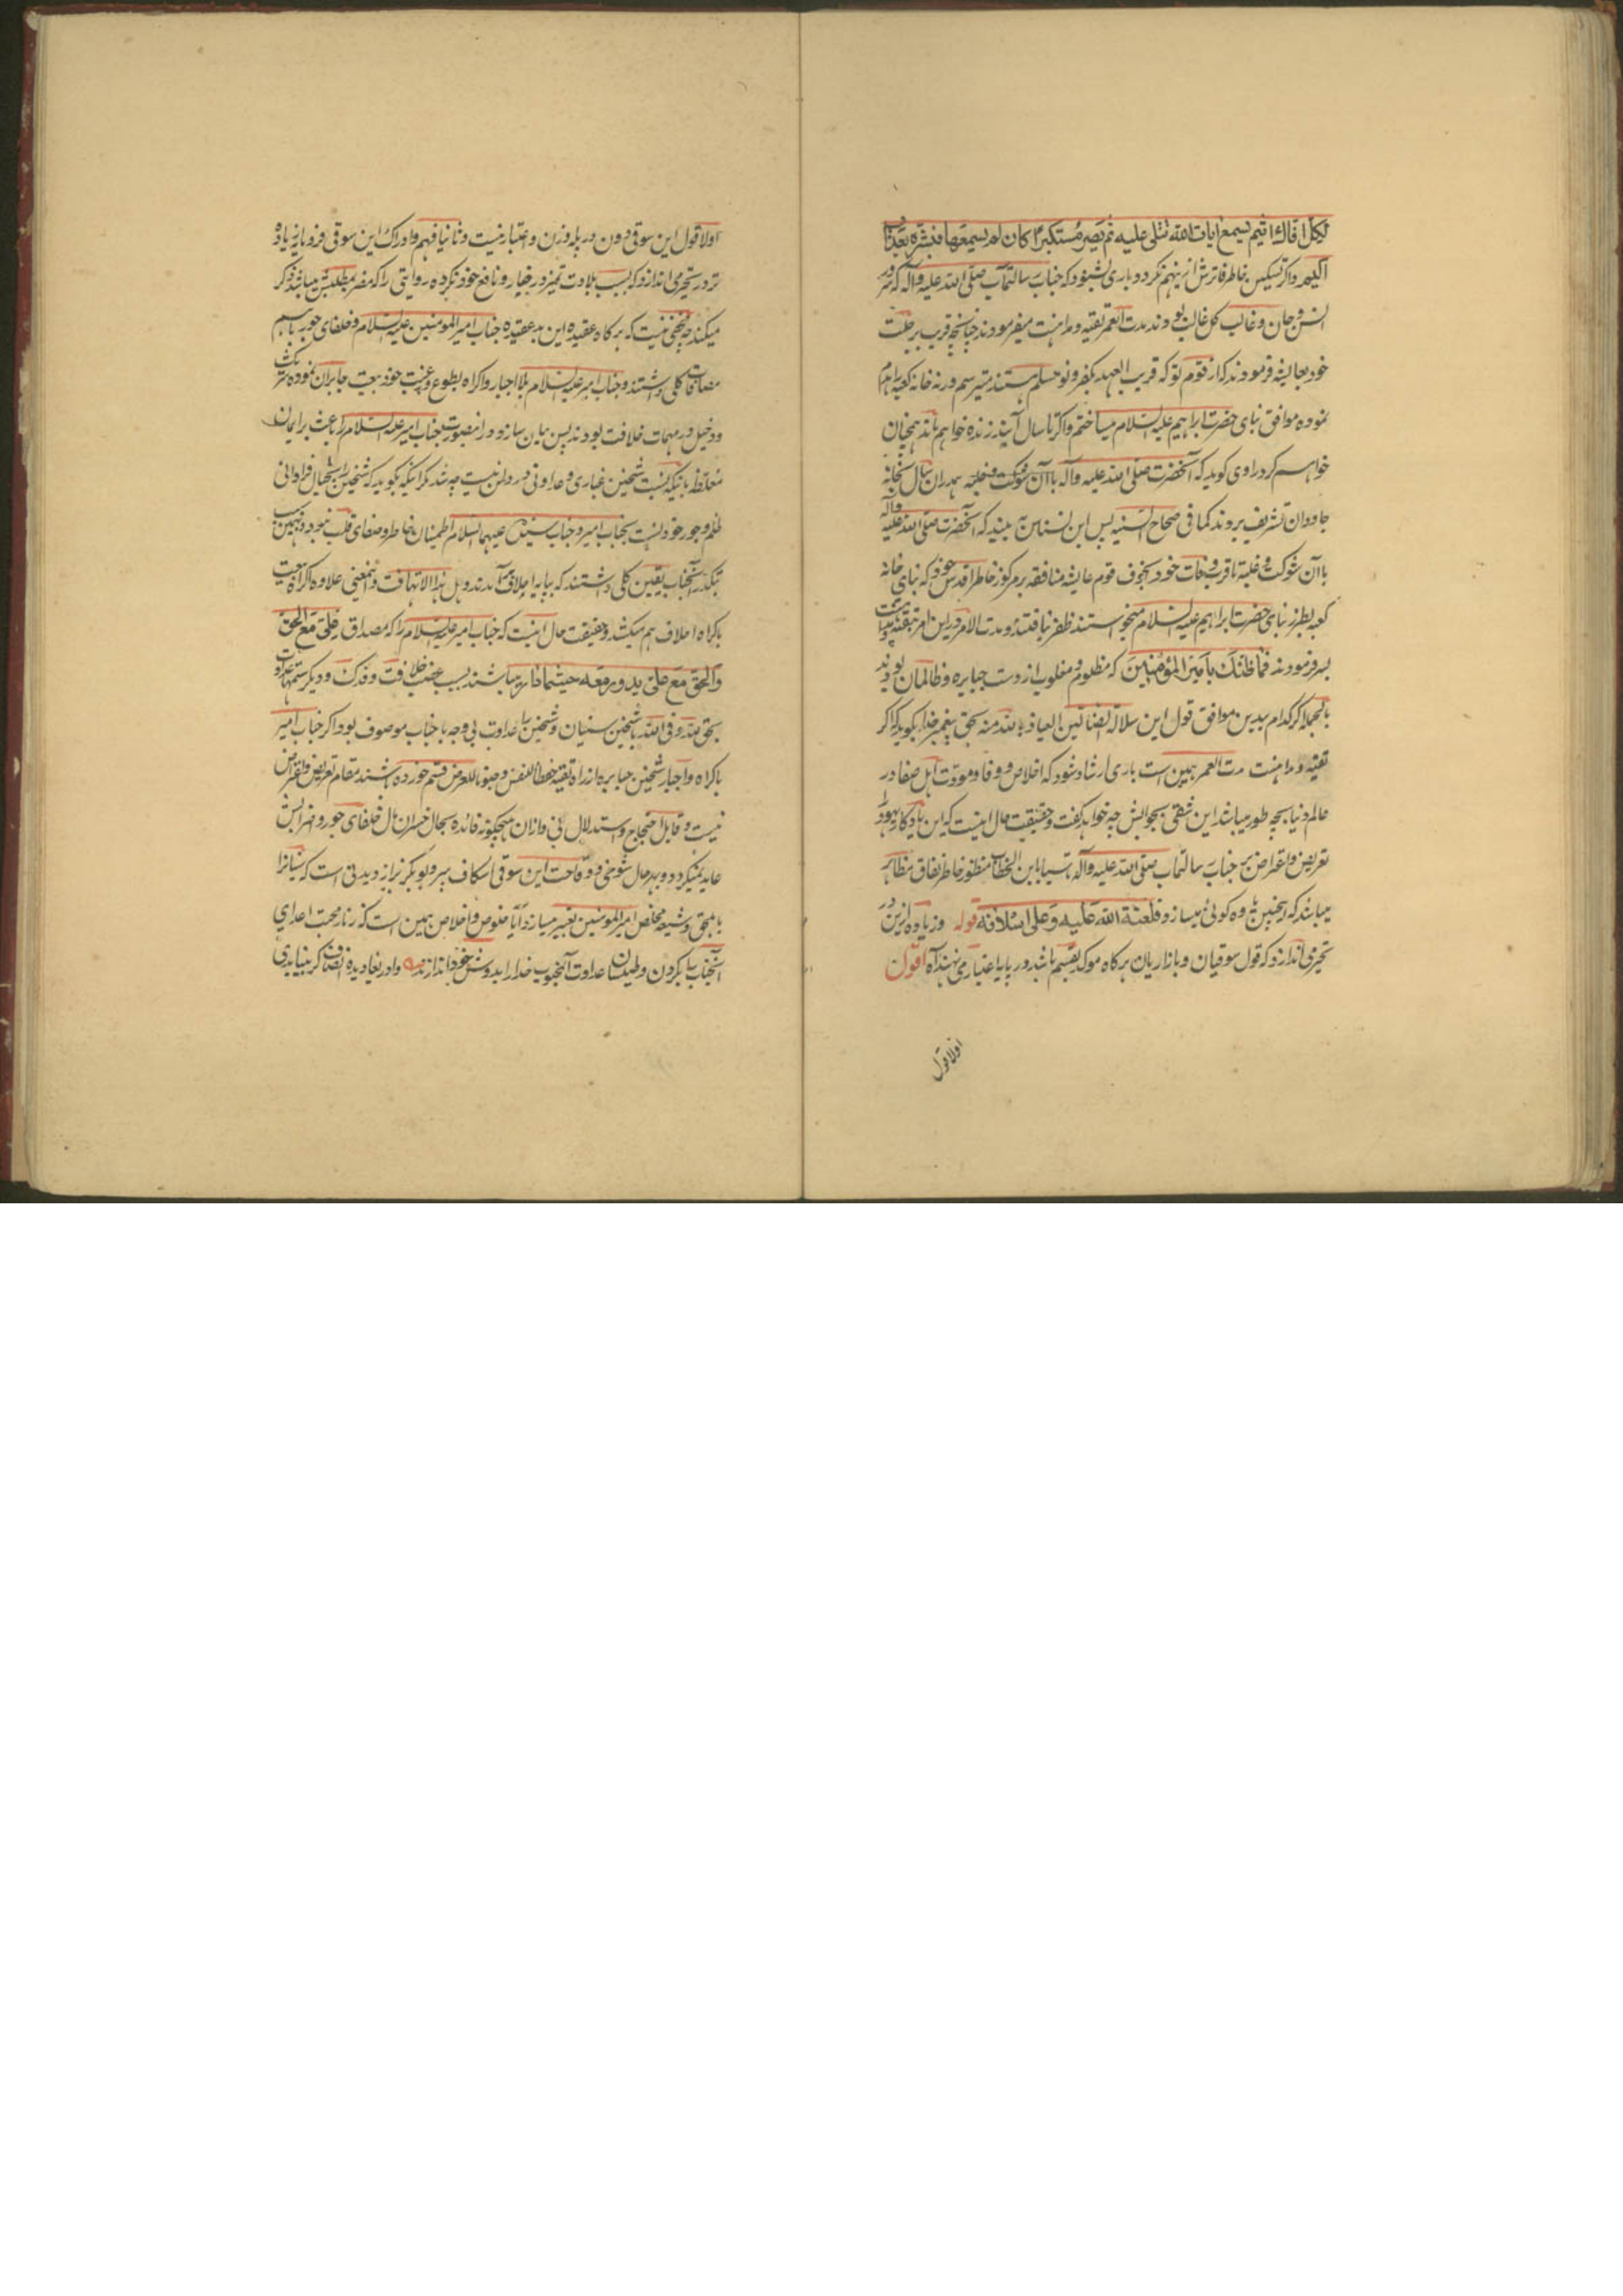 لِكُلِّ اَفّاكٍ اَثيم يَسمَع ايات الله تُتلى عليه ثم يُصِرّ مُستكبرًا كان لم يسمعها فبشّره بعذاب
اليم واگر تسکین خاطر فاترش ازینهم نگردد باری بشنود که جناب رسالتمآب صلّی الله علیه وآله که بر
انس وجان وغالب کل غالب بودند مدت العمر تقیه ومداهنت میفرمودند چنانچه قریب برحلت
خود بعایشه فرمودند که از قوم تو که قریب العهد بکفر ونو مسلم هستند میترسم ورنه خانه کعبه را هدم
نموده موافق بنای حضرت ابراهیم علیه السلام میساختم واگر تا سال آینده زنده خواهم ماند همچنان
خواهم کرد راوی گوید که آنحضرت صلّی الله علیه وآله با آن شوکت وغلبه همدران سال بخانه
جاودان تشریف بردند کما فی صحاح السنیه پس این نسناس نه بیند که آنحضرت صلّی الله علیه وآله
با آن شوکت وغلبه تا قرب وفات خود بخوف قوم عایشه منافقه برمرکوز خاطر اقدس خود که بنای خانه
کعبه بطرز بنای حضرت ابراهیم علیه السلام میخواستند ظفر نیافتند ومدت الامر درین امر بتقیه
بسر فرمودند فما ظنک بامیر المؤمنین که مظلوم ومغلوب از دست جبابره وظالمان بودند
بالجمله اگر کدام بیدین موافق قول این سلالة العیاذ بالله منه بحق پیغمبر خدا بگوید که اگر
تقیه ومداهنت مدت العمر همین است باری ارشاد شود که اخلاص ووفا ومودّت اهل صفا در
عالم دنیا بچه طور میباشد این شقی بجوابش چه خواهد گفت وحقیقت حال اینست که این یادگار یهود را
تعریض واعتراض بر جناب رسالتمآب صلّی الله علیه وآله تأسیا بابن الخطاب منظور خاطر نفاق مظاهر
میباشد که اینچنین یاوه گوئی میسازد فلعنة الله علیه وعلی اسلافه قوله وزیاده ازین در
تحیر می اندازد که قول سوقیان وبازاریان هرگاه موکد بقسم باشد در پایه اعتبار می نهند آه اقول
اولا قول
اولا قول این سوقی دون در پله وزن واعتبار نیست وثانیا فهم وادراک این سوقی فرومایه زیاده
تر در تحیر می اندازد که بسبب بلادت تمیز در ضار ونافع خود نکرده روایتی را که مضر مطلبش میباشد ذکر
میکند چه مخفی نیست که هرگاه عقیده این بدعقیده جناب امیر المومنین علیه السلام وخلفای جور باهم
مصافات کلی داشتند وجناب امیر علیه السلام بلا اجبار واکراه بطوع ورغبت خود بیعت جابران نموده شریک
ودخیل در مهمات خلافت بودند پس بیان سازد ورا نصورت جناب امیر علیه السلام را باعث بر ایمان
مغلظه باینکه نسبت شیخین غباری وعداوتی در دل نیست چه شد مگر اینکه بگوید که شیخین را بخیال فراوانی
ظلم وجور خود نسبت بجناب امیر وجناب سیده علیهما السلام اطمینان خاطر وصفای قلب نبود
تکدر آنجناب یقین کلی داشتند که بپایه احلاف آمدند وهل هذا الا تهافت ونمعنی علاوه اکراه بیعت
باکراه احلاف هم میکشد وحقیقت حال اینست که جناب امیر علیه السلام را که مصداق علیّ مع الحق
والحق مع علیّ یدور معه حیثما دار میباشند بسبب غصب خلافت وفدک ودیگر ستمها عداوت
بحق لله وفی الله باشیخین سنیان وشیخین را عداوت بی وجه با جناب موصوف بود اگر جناب امیر
باکراه واجبار شیخین جبابره از راه تقیه حفظا للنفس وصونا للعرض قسم خورده باشند مقام تعریض واعتراض
نیست وقابل احتجاج واستدلال نی وازان هیچگونه فائده بحال خسران مآل خلفای جور وضرایش
عاید نمیگردد وبهرحال شوخی ووقاحت این سوقی اسکاف ببر وبوبکر بزاز دیدنی است که سنیان را
بمحق وشیعه مخلص امیر المومنین تعبیر میسازد آیا خلوص واخلاص همین است که زنار محبت اعدای
آنجناب را بگردن وطیلسان عداوت آنمحبوب خدا را بدوش خود اندازند وادر یغا دیده انصاف گر بینا بدی